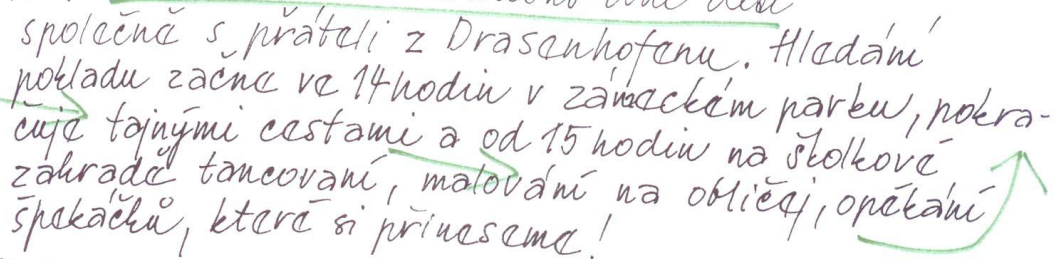 společně s přáteli z Drasenhofenu. Hledání
pokladu začne ve 14 hodin v zámeckém parku, pokra-
čuje tajnými cestami a od 15 hodin na školkové
zahradě tancovaní, malování na obličej, opékání
špekáčků, které si přineseme!